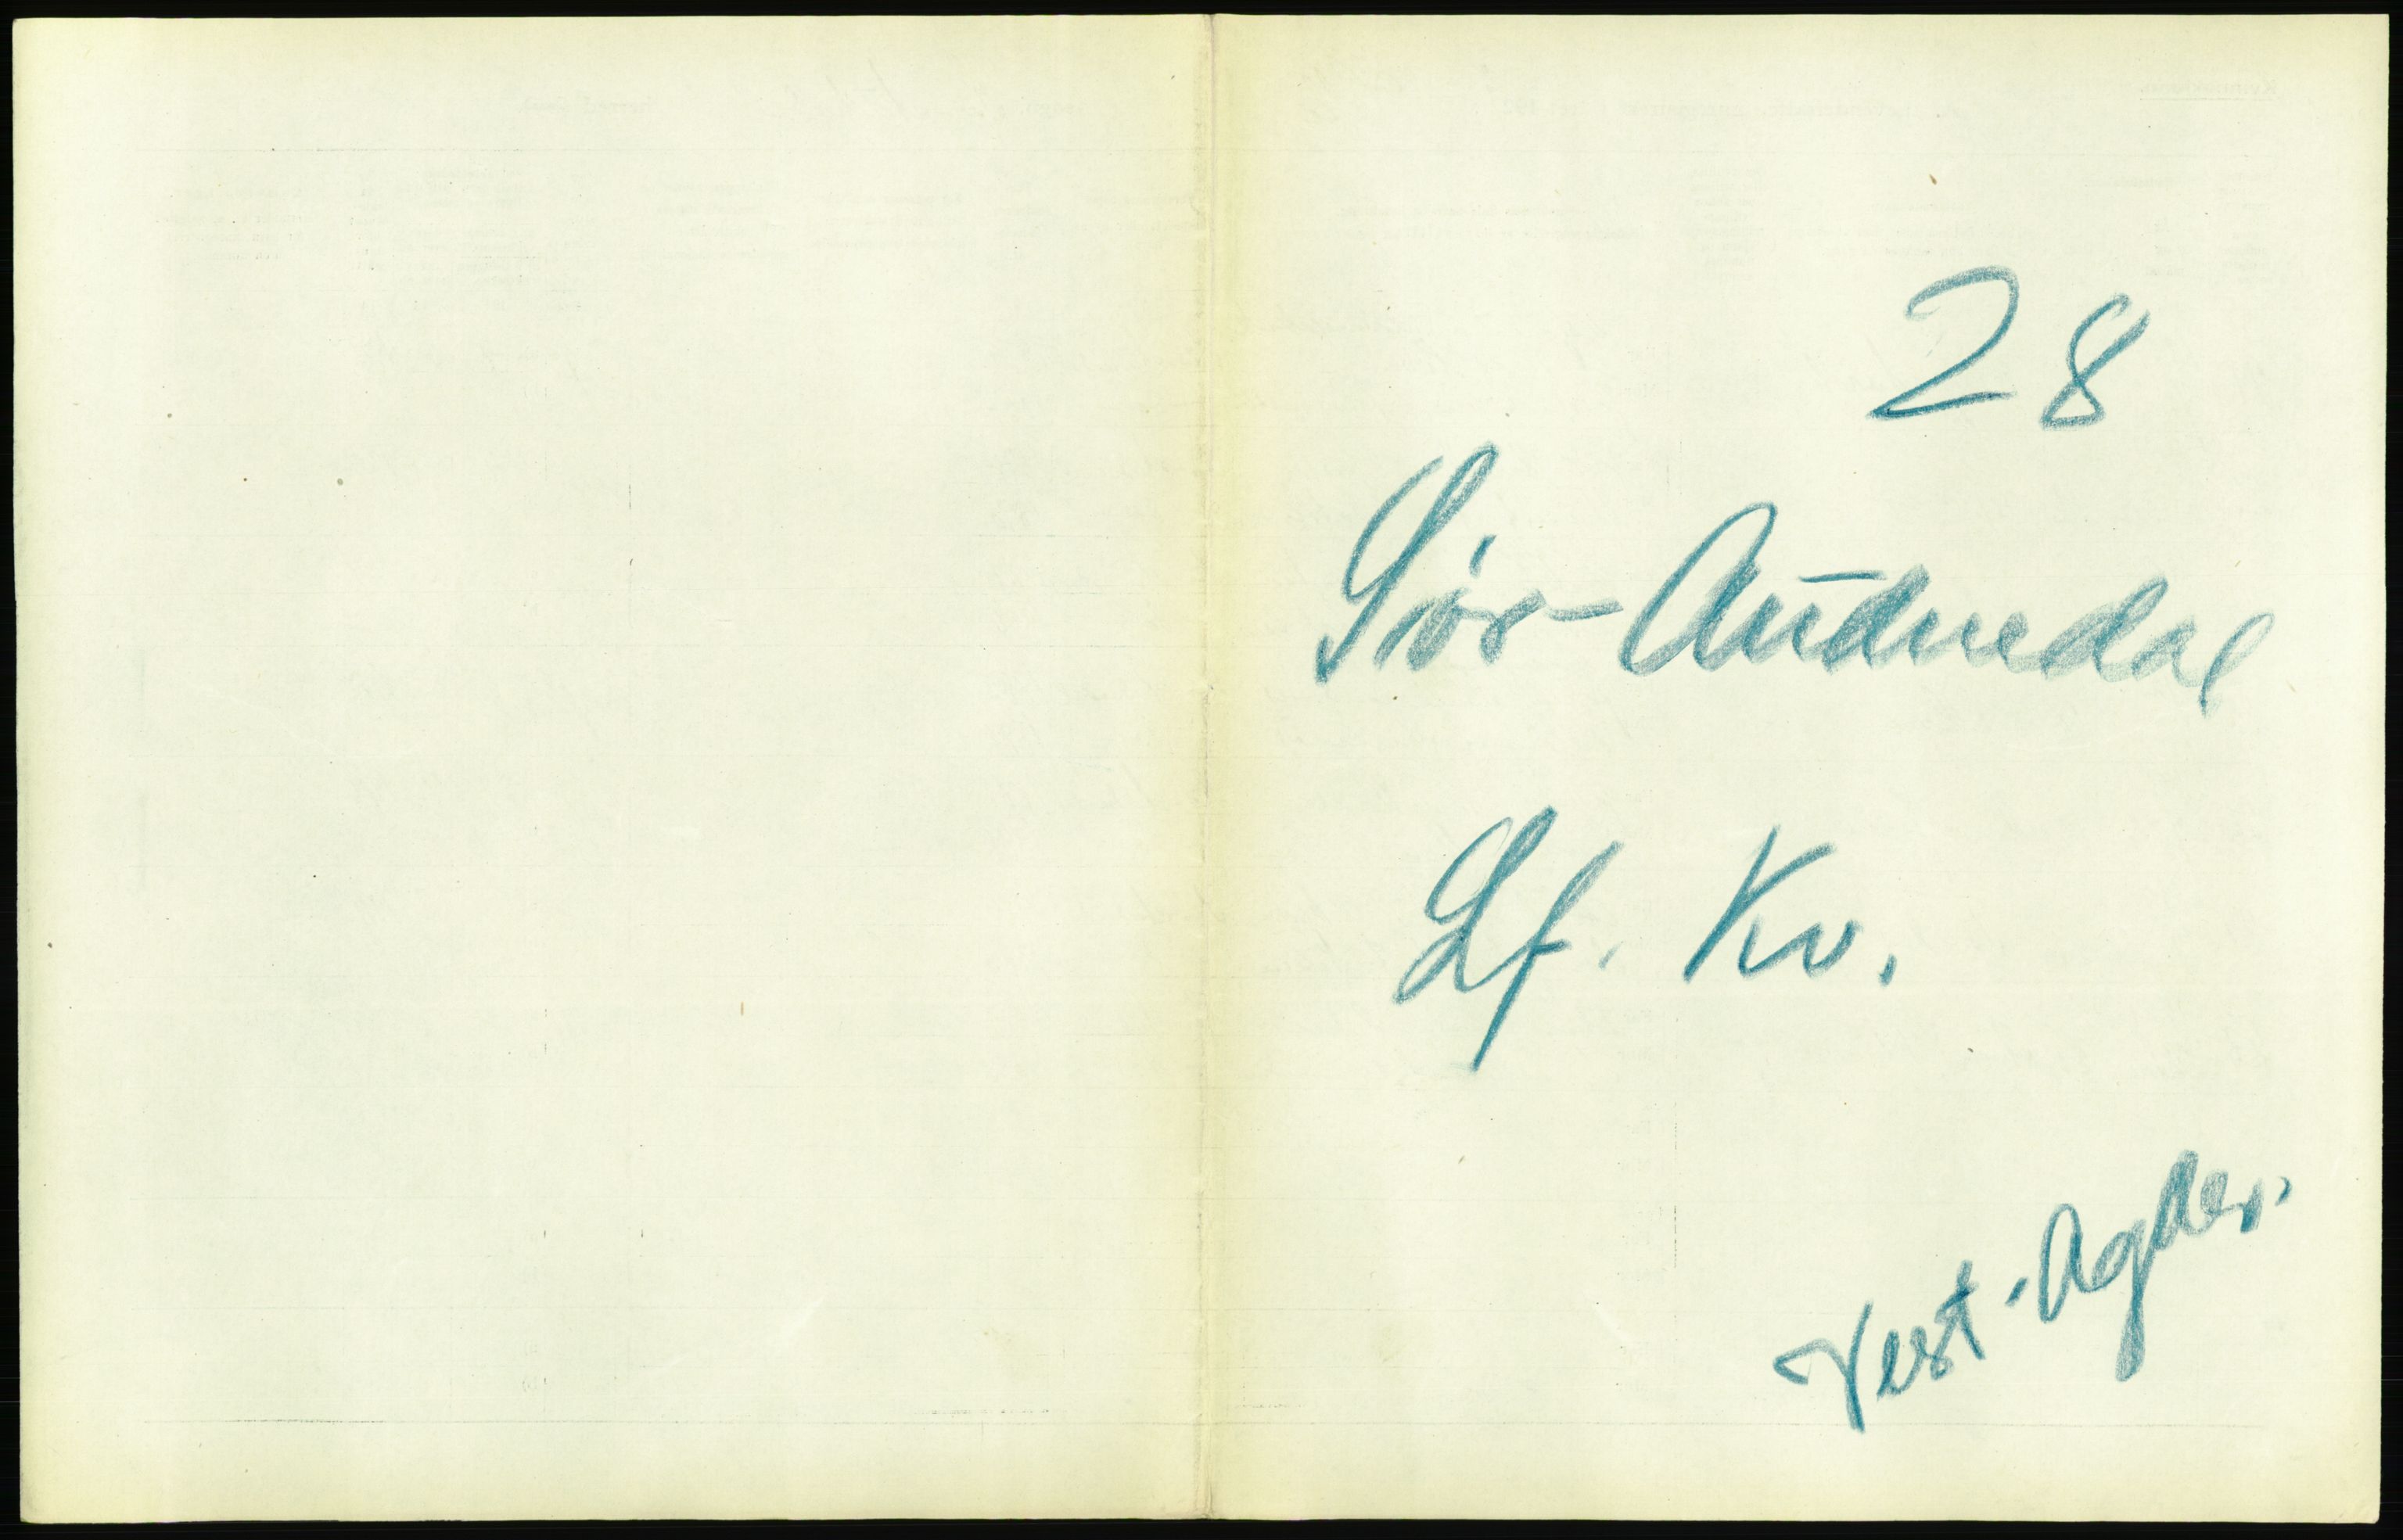 28
Sør-Audnedal
Lf. Kv.
Vest-Agder.